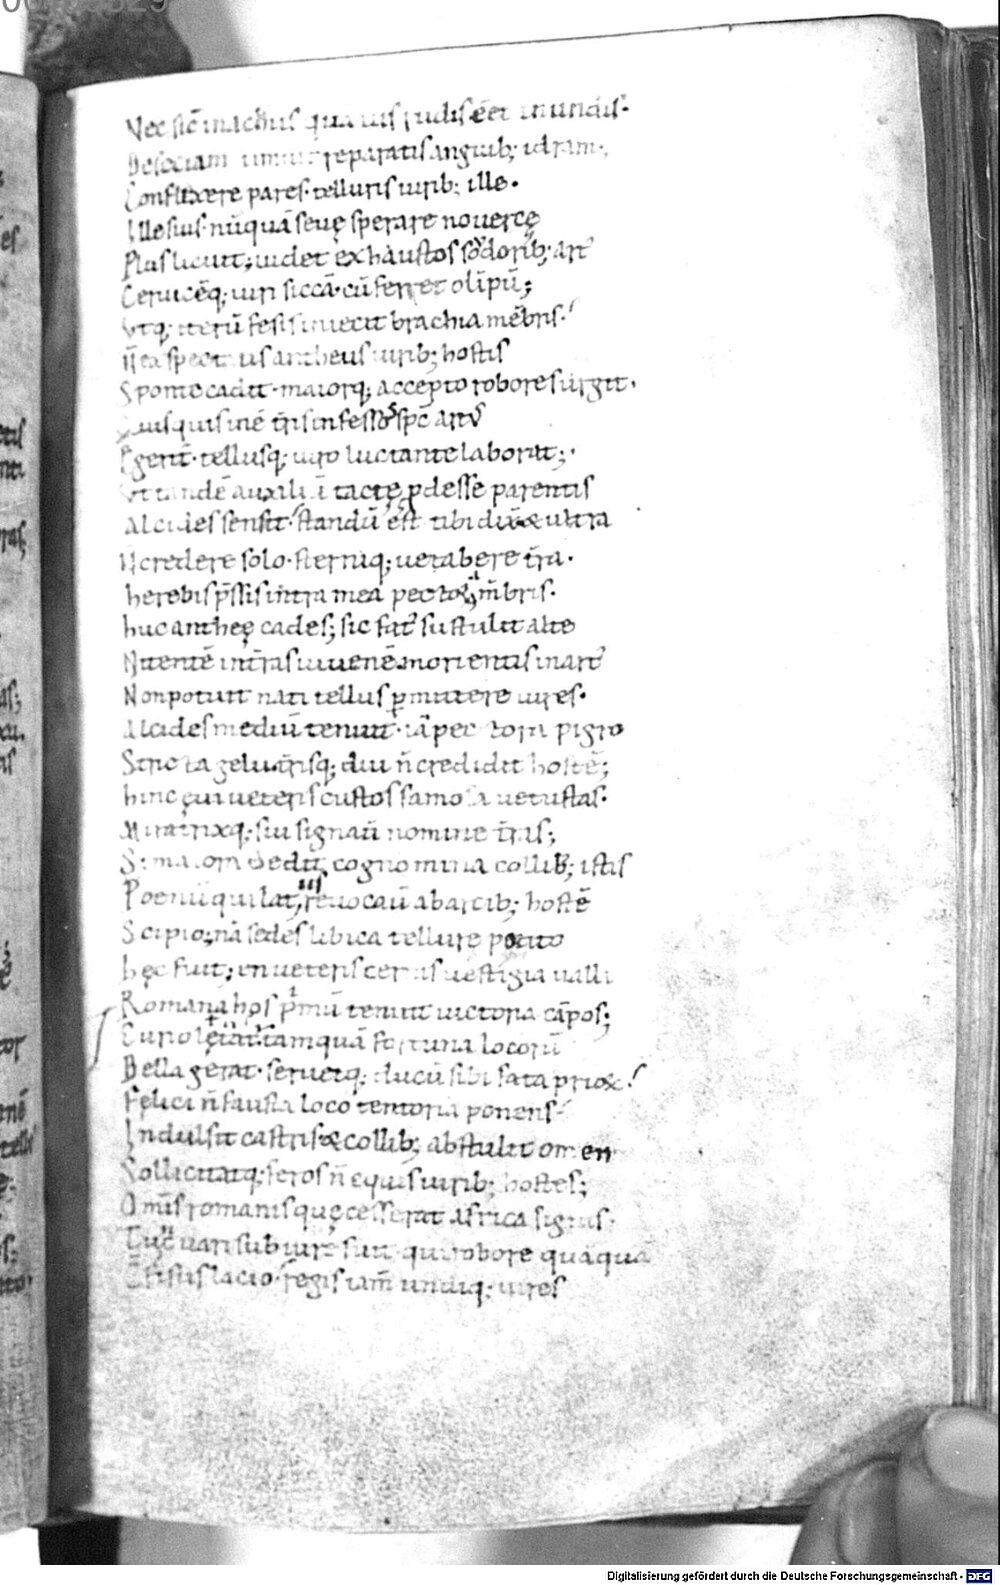 Nec sic̄ inachus qua uis rudis ēēt in undis·
Desectam timuit reparatis anguib; idram·
Conflixere pares· telluris uirib; ille·
Ille suis· nūquā seuę sperare nouercę
Plus licuit; uidet exhaustos sudorib; art᷒
Ceruicēq; uiri siccā· cū ferret olīpū;
Vtq; iterū fessis iniecit brachia mēbris·
N̄ exspectatis antheus uirib; hostis
Sponte cadit· maiorq; accepto robore surgit·
Quisquis inē tr̄is in fessos sp̄c art᷒
Egerit· tellusq; uiro luctante laborat;·
Vt tandē auxiliū tactę ꝓdesse parentis
Alcides sensit· standū est tibi dixit & ultra
N̄ credere solo· sterniq; uetabere tr̄a·
herebis p̄ssis intra mea pectora m̄bris·
huc antheę cades; sic fat᷒ sustulit alte
Nitentē in tr̄as iuuenē· morientis in art᷒
Non potuit nati tellus ꝑmittere uires·
Alcides mediū tenuit· iā pectora pigro
Stricta gelu tr̄isq; diu n̄ credidit hostē;
hinc ęui ueteris custos famosa uetustas·
Miratrixq; sui signauit nomine tr̄as;
Sꝫ maiora dedit cognomina collib; istis
Poenū qui latiis reuocauit ab arcib; hostē
Scipio; nā sedes libica tellure potito
hęc fuit; en ueteris cernis uestigia ualli
Romana hos primū tenuit uictoria cāpos;
Curio lętat᷒ tamquā fortuna locorū
Bella gerat· seruetq; ducū sibi fata priorꝫ·
Felici n̄ fausta loco tentoria ponens·
Indulsit castris & collib; abstulit omen
Sollicitatq; feros n̄ ęquis uirib; hostes;
Om̄is romanis quę cesserat africa signis·
Tūc uari sub iure fuit qui robore quāquā
Cōfisus lacio· regis tam̄ undiq; uires
Digitalisierung gefördert durch die Deutsche Forschungsgemeinschaft - DFG